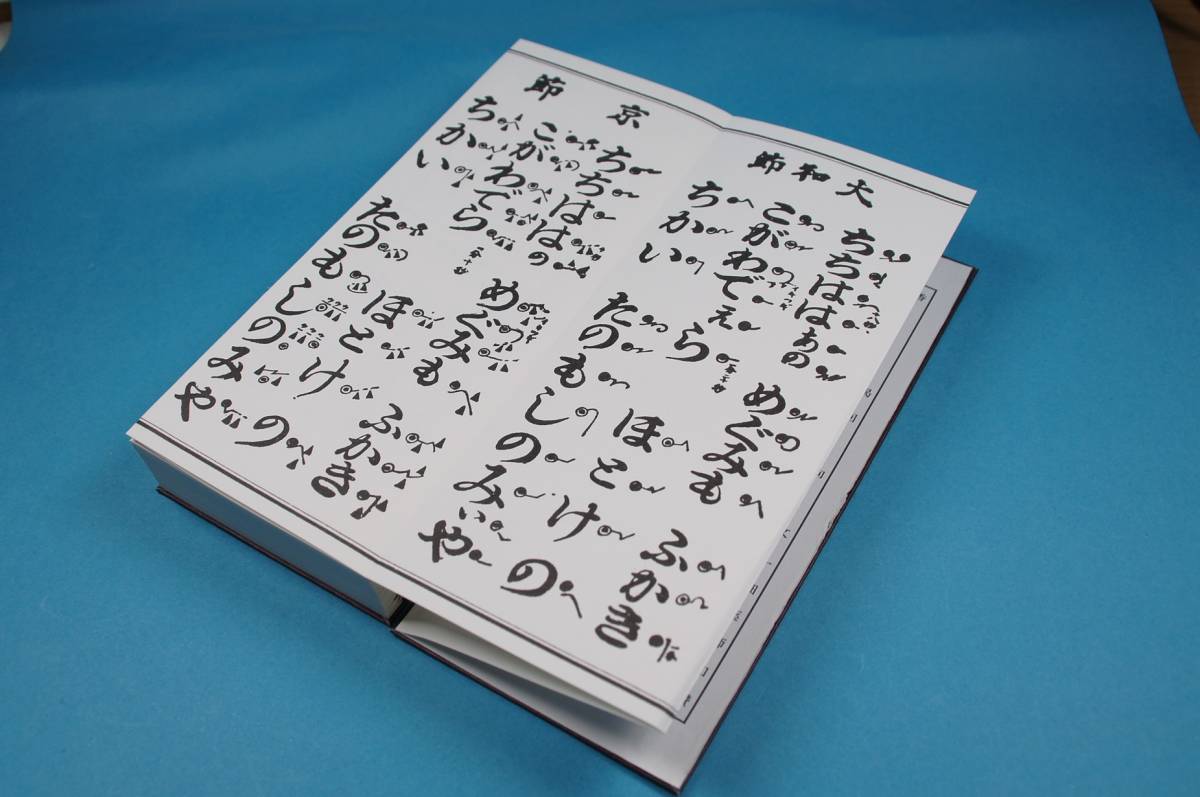 大和節
ちちははあの めぐみも ふかき
こがわでえら ほとけの
ちかい たのもしのみぃや
京節
ちちははの めぐみも ふかき
こがわでら ほとけの
ちかい たのもしのみや